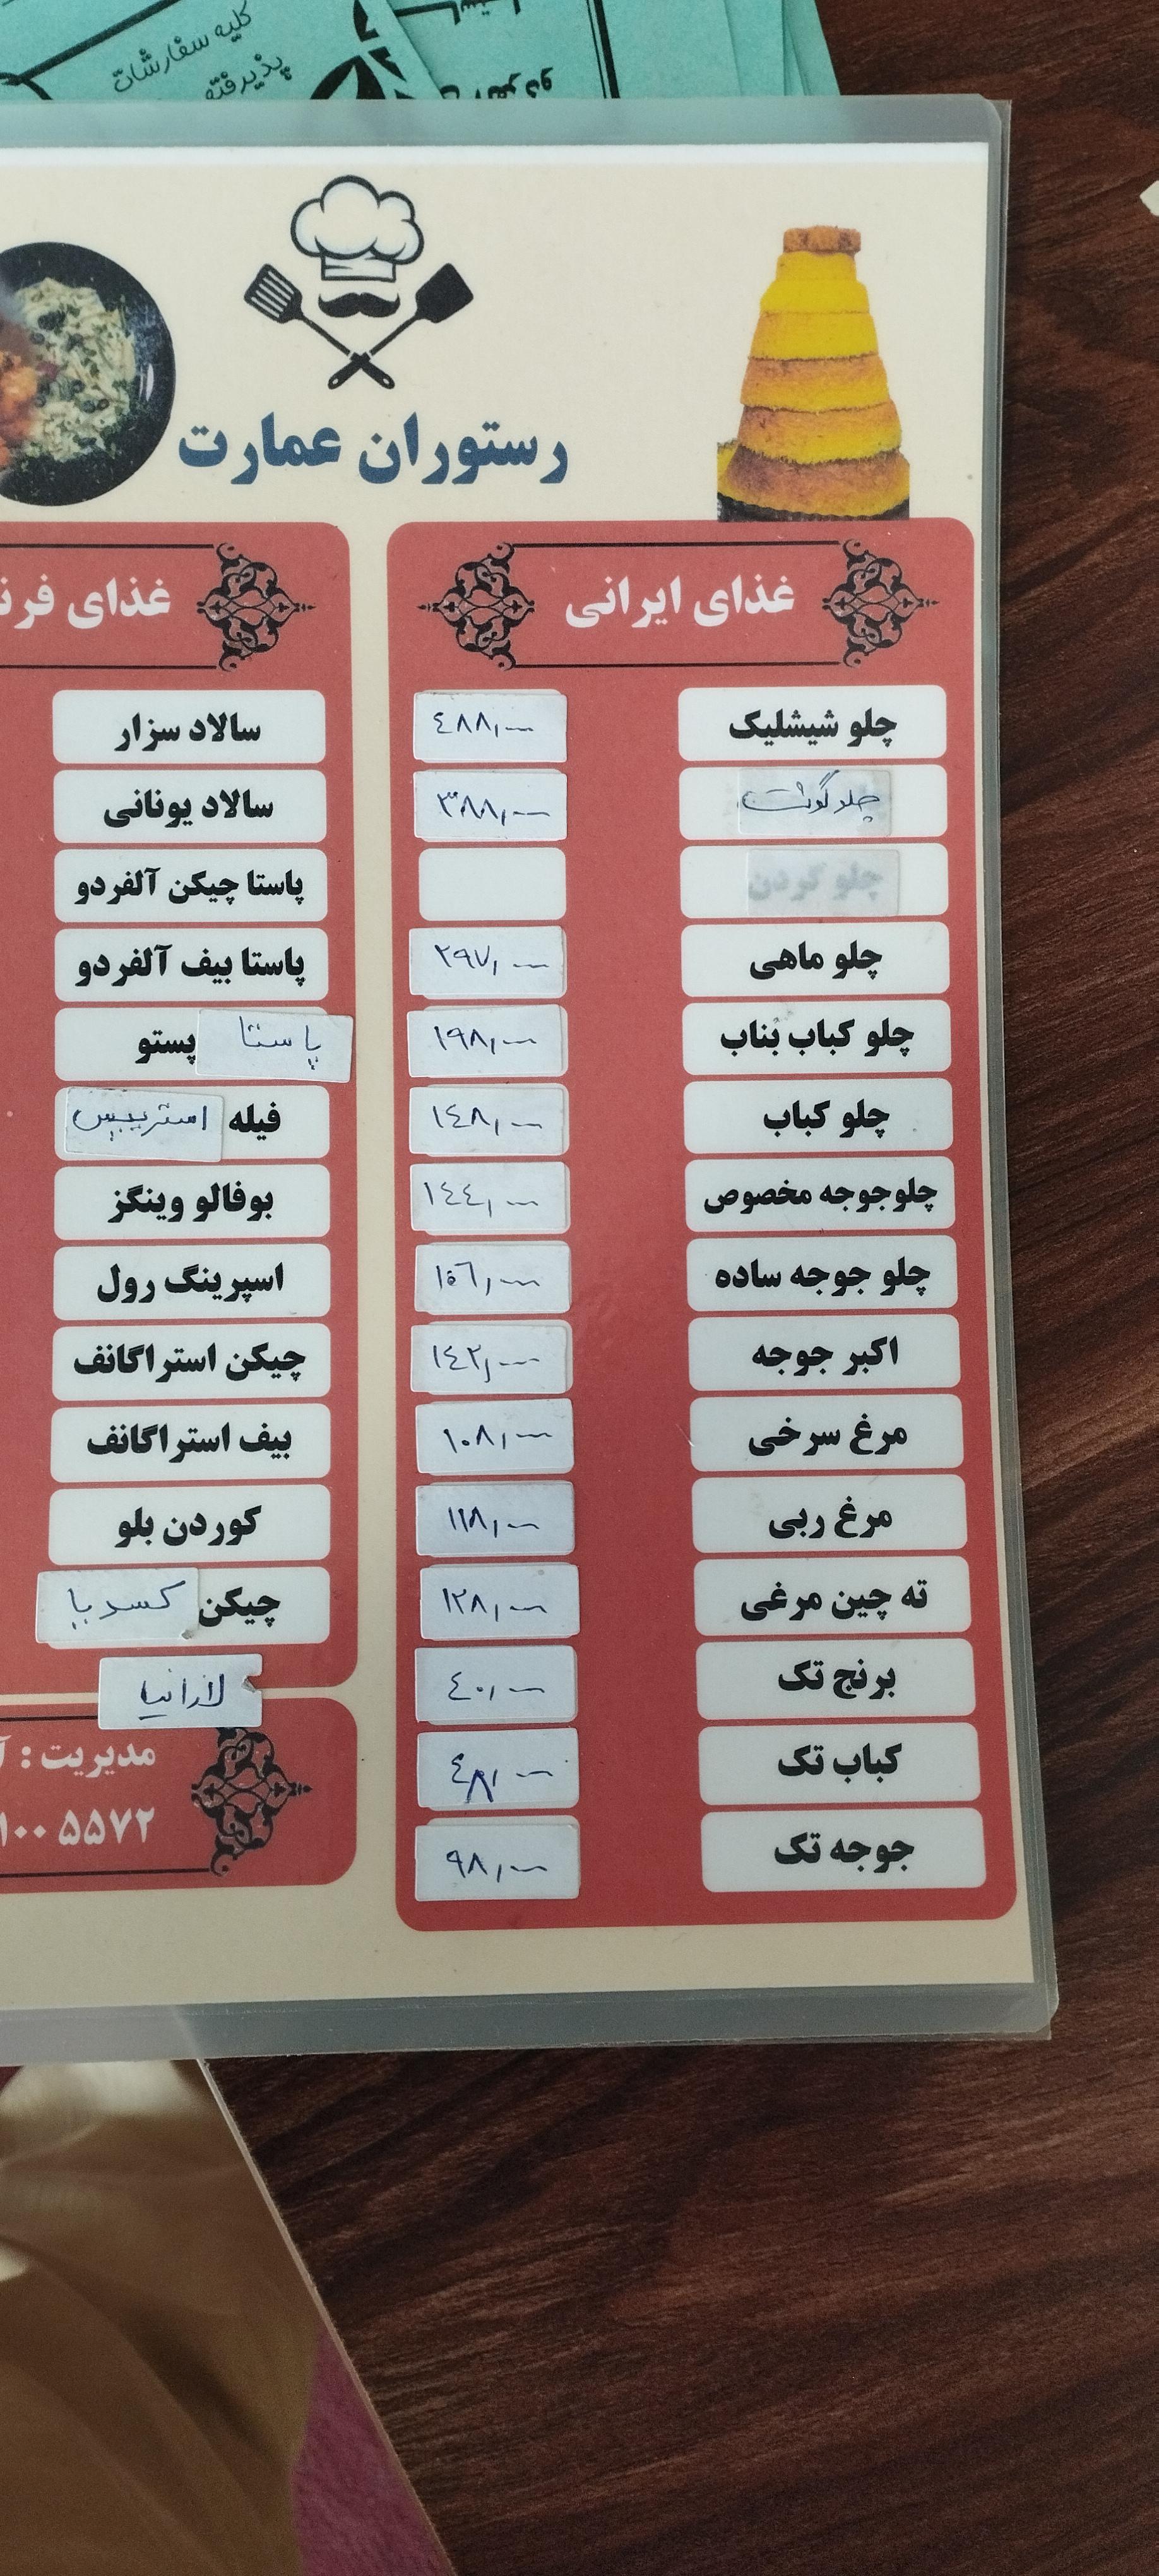 کلیه سفارشات
پذیرفته
رستوران عمارت
غذای ایرانی
چلو شیشلیک ۴۸۸,۰۰۰
چلو گوشت ۳۸۸,۰۰۰
چلو گردن
چلو ماهی ۲۹۷,۰۰۰
چلو کباب بُناب ۱۹۸,۰۰۰
چلو کباب ۱۴۸,۰۰۰
چلوجوجه مخصوص ۱۴۴,۰۰۰
چلو جوجه ساده ۱۵۶,۰۰۰
اکبر جوجه ۱۴۲,۰۰۰
مرغ سرخی ۱۰۸,۰۰۰
مرغ ربی ۱۱۸,۰۰۰
ته چین مرغی ۱۲۸,۰۰۰
برنج تک ۴۰,۰۰۰
کباب تک ۴۸,۰۰۰
جوجه تک ۹۸,۰۰۰
غذای فرن
سالاد سزار
سالاد یونانی
پاستا چیکن آلفردو
پاستا بیف آلفردو
پاستا پستو
فیله استریپس
بوفالو وینگز
اسپرینگ رول
چیکن استراگانف
بیف استراگانف
کوردن بلو
چیکن کسدیا
لازانیا
مدیریت : آ
۱۰۰ ۵۵۷۲